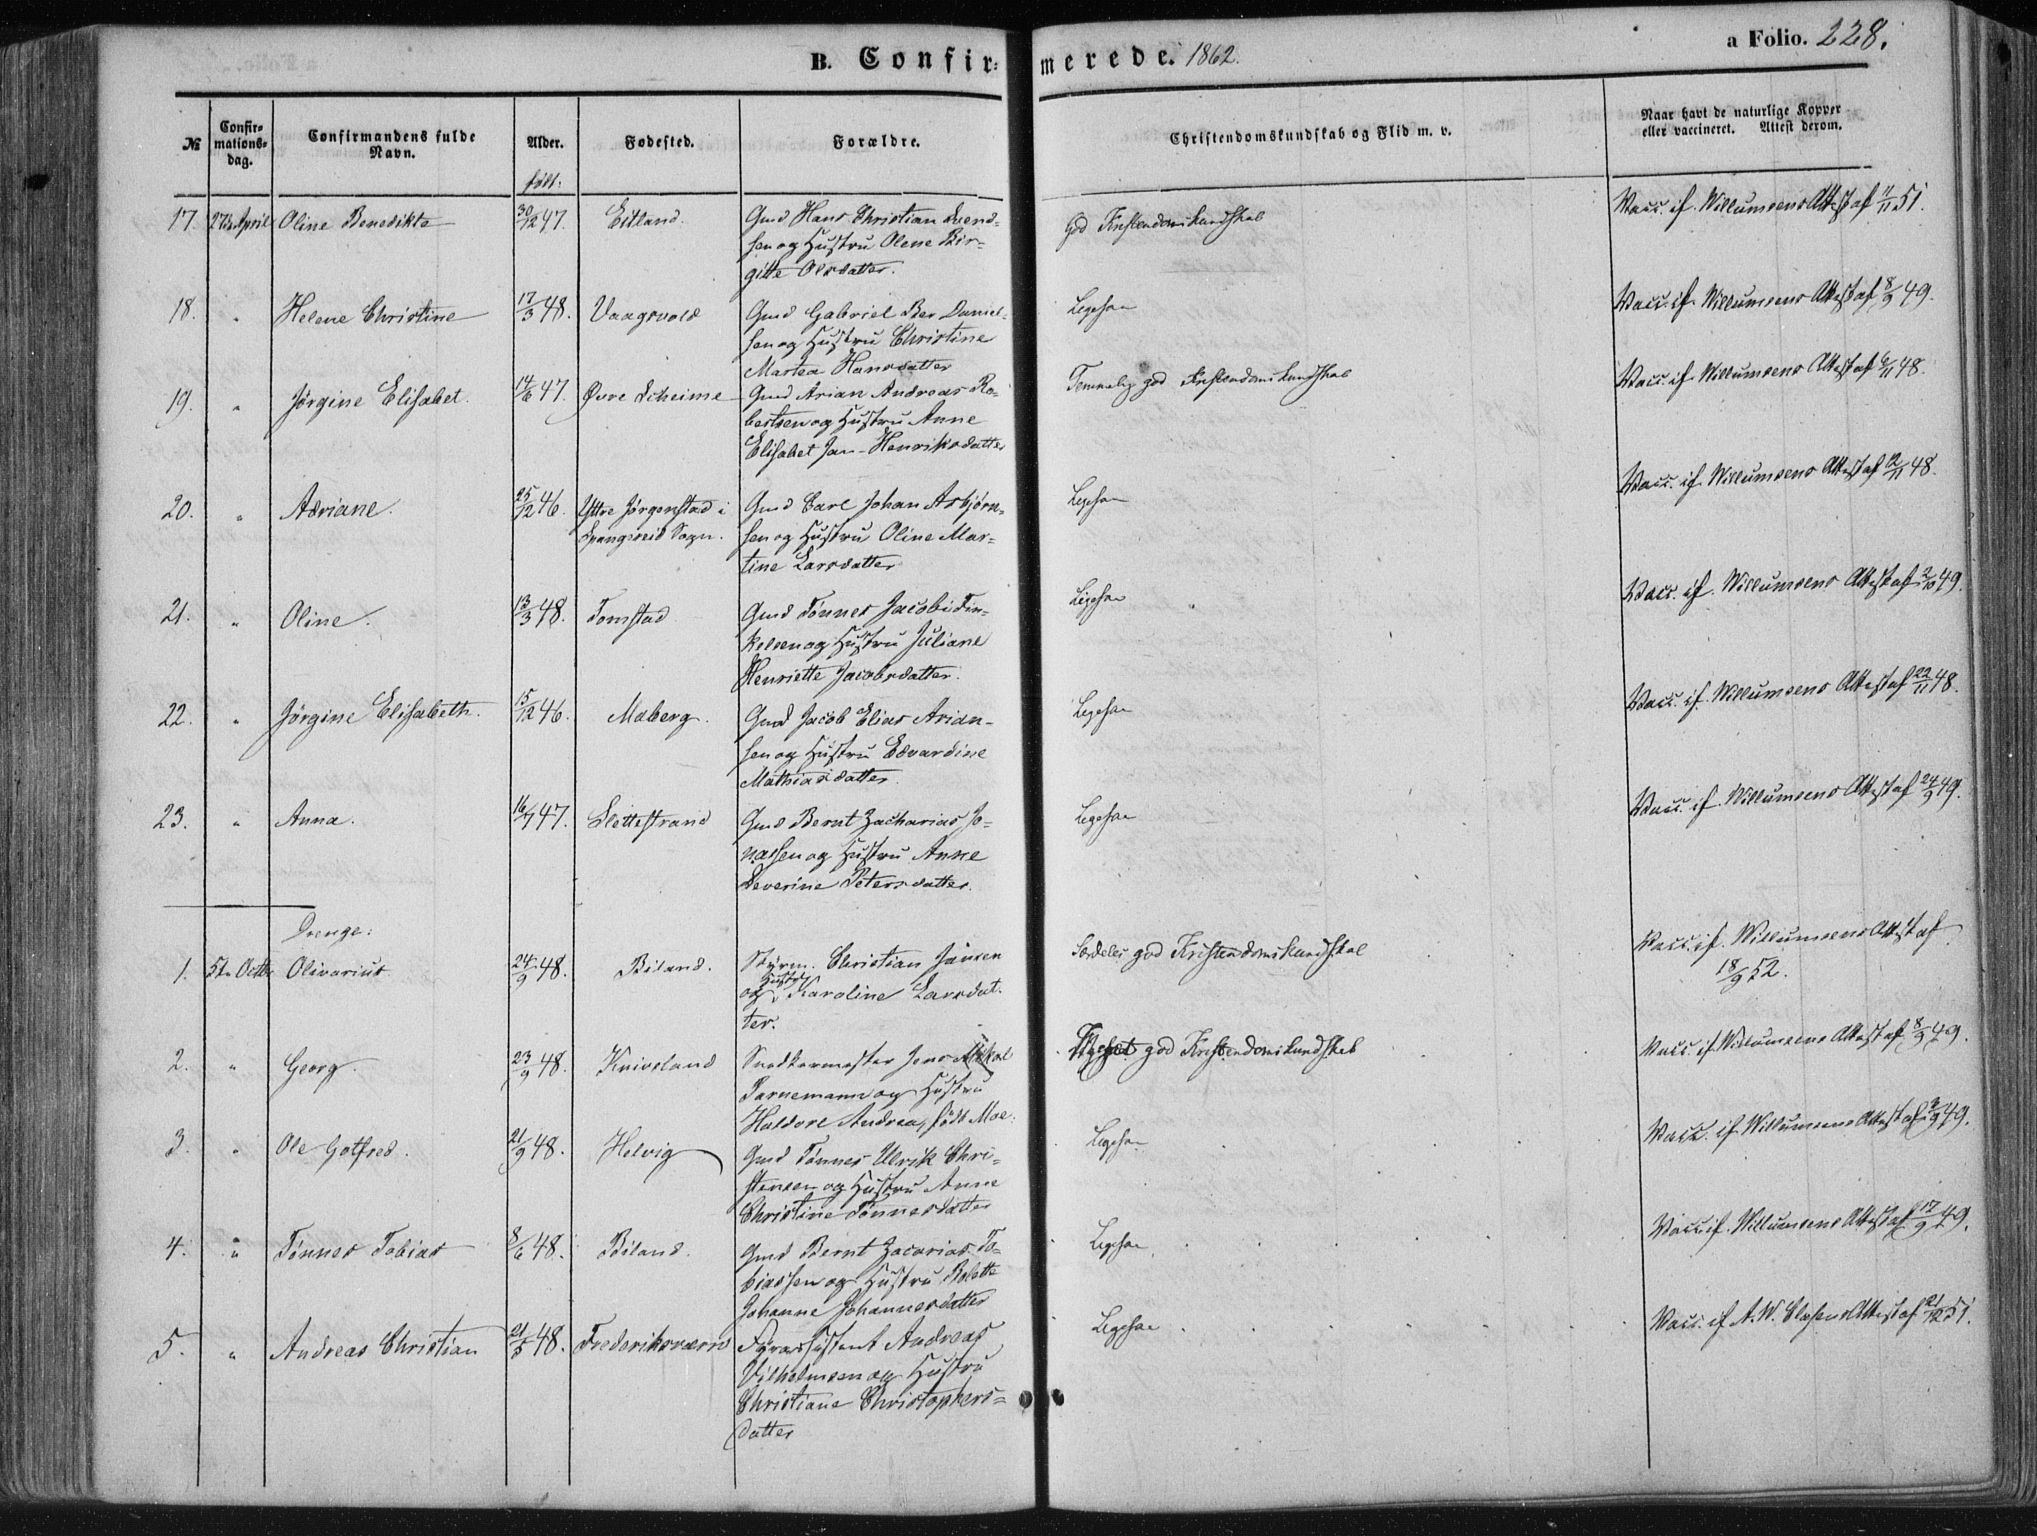 B. Confir-merede. 1862.
a Folio. 228.
№
Confir-
mations-
dag.
Confirmandens fulde
Navn.
Alder.
født.
Fødested.
Forældre.
Christendomskundskab og Flid m. v.
Naar havt de naturlige Kopper
eller vaccineret. Attest derom.
17. 27de April Oline Benedikte 30/12 47. Eitland. Gmd Hans Christian Svend-
sen og Hustru Olene Bir-
gitte Olsdatter.
god Kristendomskundskab
Vacc. if. Willumsens Attest af 11/11 51.
18. " Helene Christine 17/3 48. Vaagsvold Gmd Gabriel Ber Daniel-
sen og Hustru Christine
Martea Hansdatter
Ligesaa
Vacc. if. Willumsens Attest af 8/9 49.
19. " Jørgine Elisabet. 14/6 47. Øvre Skeime Gmd Arian Andreas Ro-
bertsen og Hustru Anne
Elisabet Jan-Henriksdatter
Temmelig god Kristendomskundskab
Vacc. if. Willumsens Attest af 6/11 48.
20. " Adriane. 25/12 46. Yttre Jørgenstad i
Spangereid Sogn.
Gmd Carl Johan Asbjørn-
sen og Hustru Oline Mar-
tine Larsdatter
Ligesaa
Vacc. if. Willumsens Attest af 12/11 48.
21. " Oline. 13/3 48. Tomstad Gmd Tønnes Jacobi Tin-
kelsen og Hustru Juliane
Henriette Jacobsdatter.
Ligesaa "
Vacc. if. Willumsens Attest af 2/10 49.
22. " Jörgine Elisabeth. 15/12 46. Maberg. Gmd Jacob Elias Arian-
sen og Hustru Edvardine
Mathiasdatter
Ligesaa
Vacc. if. Willumsens Attest af 22/11 48.
23. " Anna. 16/7 47. Slettestrand Gmd Bernt Zacharias Jo-
nassen og Hustru Anne
Severine Petersdatter.
Ligesaa
Vacc. if. Willumsens Attest af 24/9 49.
Drenge:
1. 5te Octbr Olivarius 24/9 48. Biland. Styrm. Christian Jansen
og Hustru Karoline Larsdat-
ter.
Særdeles god Kristendomskundskab
Vacc. if. Willumsens Attest af
18/9 52.
2. " Georg. 23/9 48. Kniveland Snedkermester Jens Mikal
Tarnemann og Hustru
Haldore Andrea, født Moe.
god Kristendomskundskab
Vacc. if. Willumsens Attest af 8/9 49.
3. " Ole Gotfred. 21/9 48. Helvig Gmd Tønnes Ulrik Chri-
stensen og Hustru Anne
Christine Tønnesdatter
Ligesaa
Vacc. if. Willumsens Attest af 49.
4. " Tønnes Tobias 8/6 48. Biland. Gmd Bernt Zacarias To-
biassen og Hustru Bolette
Johanne Johannesdatter
Ligesaa
Vacc. if. Willumsens Attest af 17/9 49.
5. " Andreas Christian 21/5 48. Frederiksværn Fyrassistent Andreas
Vilhelmsen og Hustru
Christiane Christophers-
datter
Ligesaa
Vacc. if. A. W. Clasens Attest af 21/12 51.